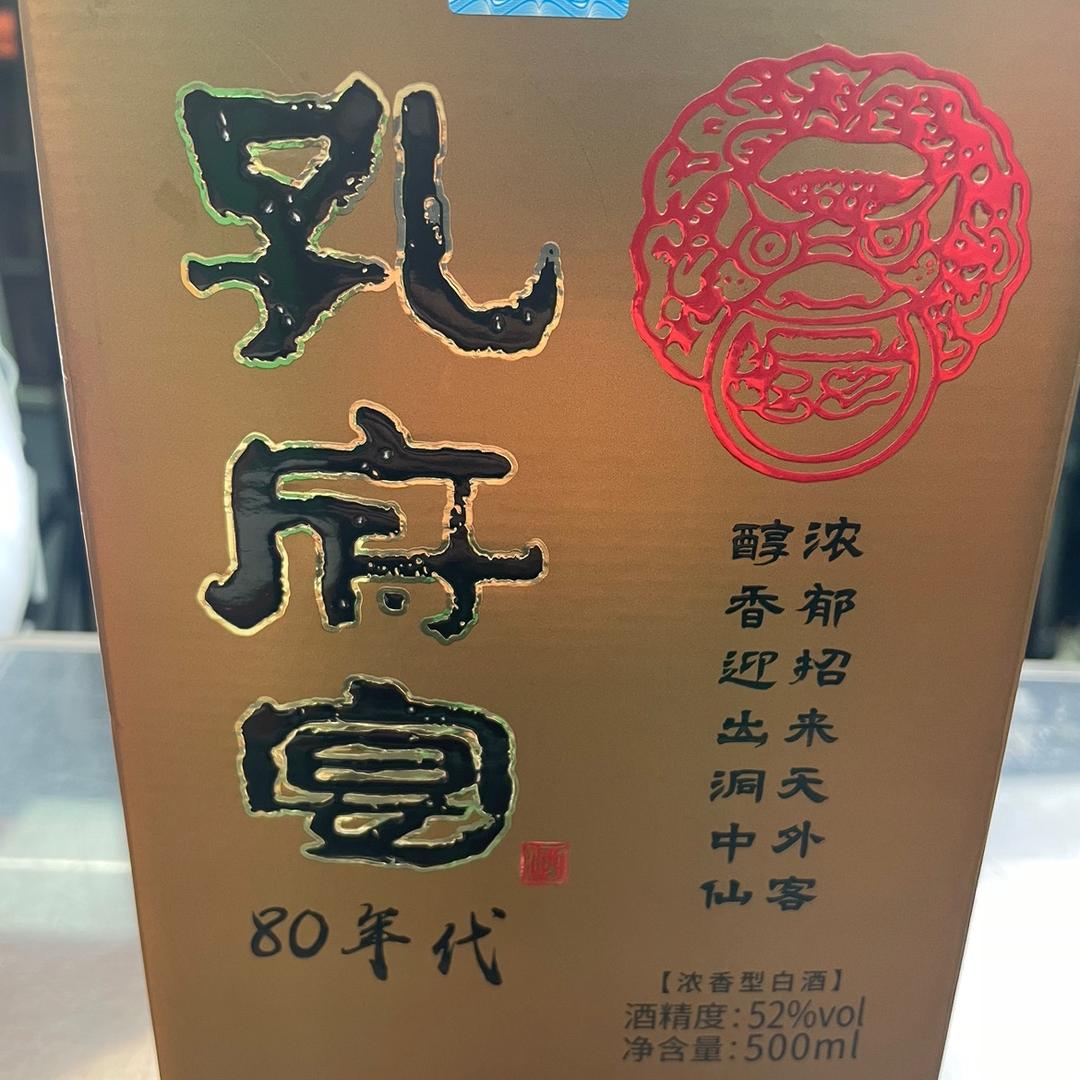 孔府宴
酒
80年代
浓郁招来天外客
醇香迎出洞中仙
【浓香型白酒】
酒精度:52%vol
净含量:500ml